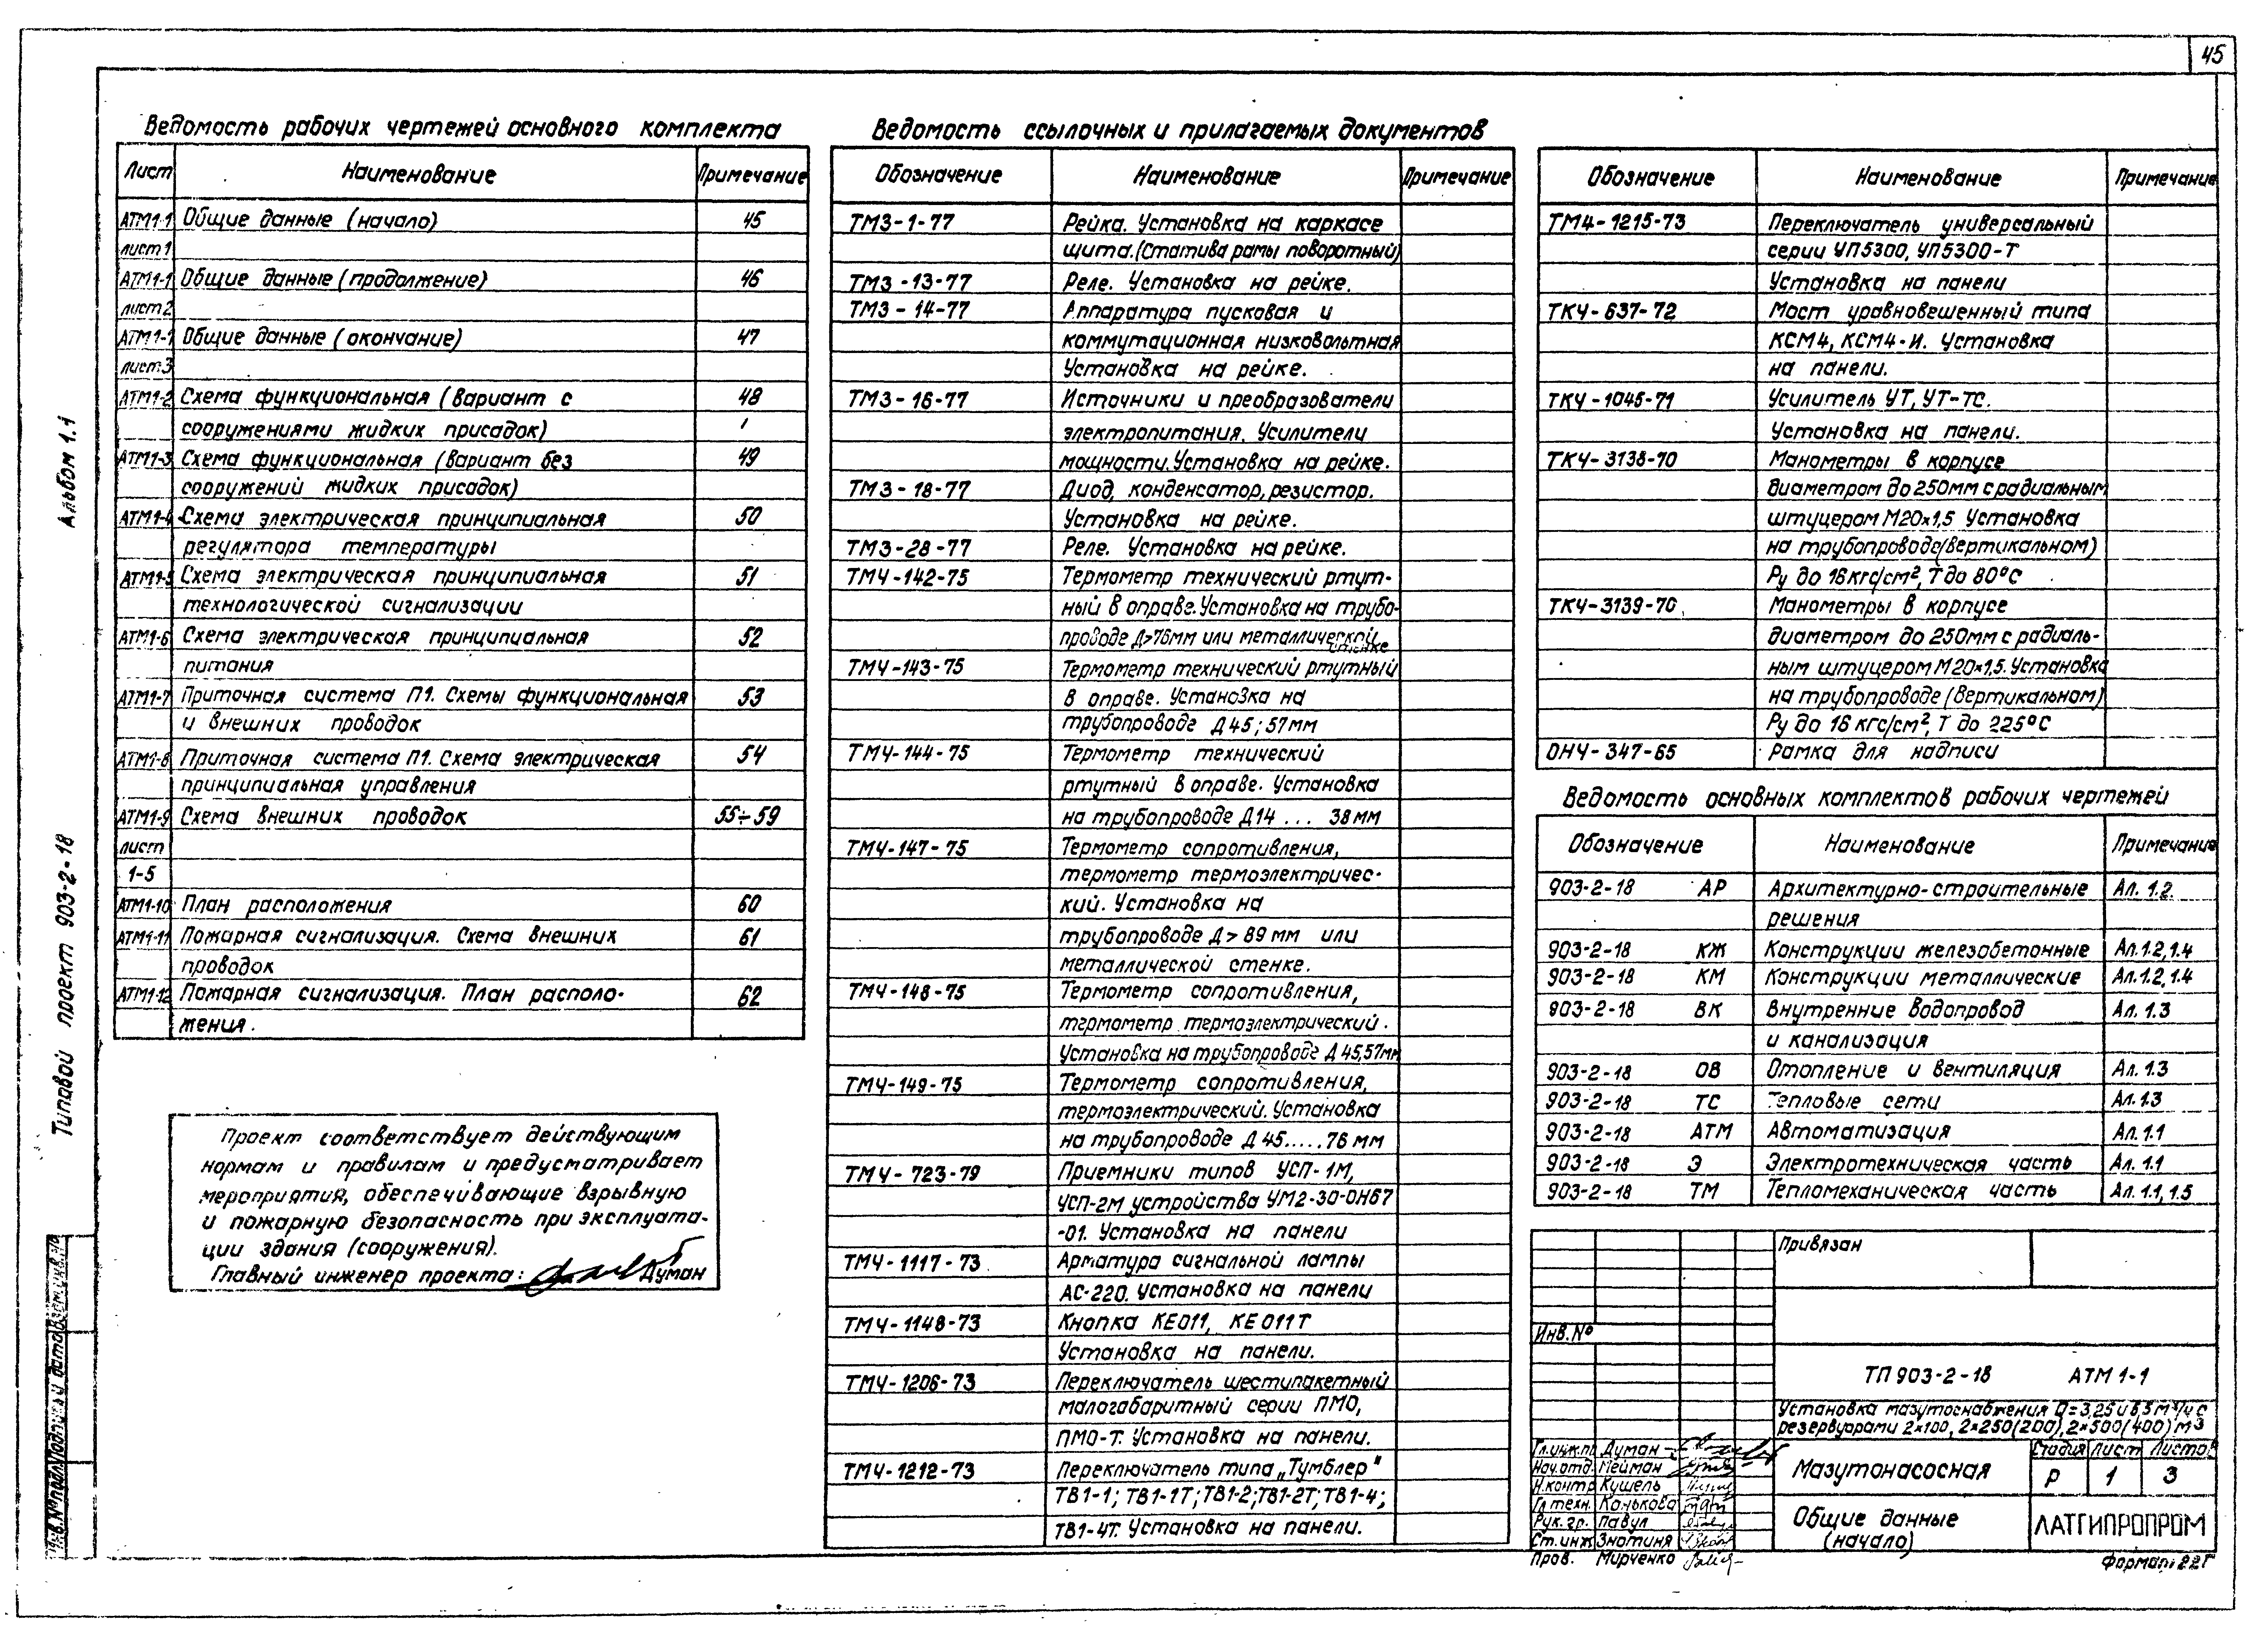 45
Ведомость рабочих чертежей основного комплекта
Лист Наименование Примечание
АТМ1-1 Общие данные (начало) 45
лист 1
АТМ1-1 Общие данные (продолжение) 46
лист 2
АТМ1-1 Общие данные (окончание) 47
лист 3
АТМ1-2 Схема функциональная (вариант с 48
сооружениями жидких присадок)
АТМ1-3 Схема функциональная (вариант без 49
сооружений жидких присадок)
АТМ1-4 Схема электрическая принципиальная 50
регулятора температуры
АТМ1-5 Схема электрическая принципиальная 51
технологической сигнализации
АТМ1-6 Схема электрическая принципиальная 52
питания
АТМ1-7 Приточная система П1. Схемы функциональная 53
и внешних проводок
АТМ1-8 Приточная система П1. Схема электрическая 54
принципиальная управления
АТМ1-9 Схема внешних проводок 55÷59
лист
1-5
АТМ1-10 План расположения 60
АТМ1-11 Пожарная сигнализация. Схема внешних 61
проводок
АТМ1-12 Пожарная сигнализация. План располо- 62
жения.
Проект соответствует действующим
нормам и правилам и предусматривает
мероприятия, обеспечивающие взрывную
и пожарную безопасность при эксплуата-
ции здания (сооружения).
Главный инженер проекта: Думан
Ведомость ссылочных и прилагаемых документов
Обозначение Наименование Примечание
ТМ3-1-77 Рейка. Установка на каркасе
щита. (Статива рамы поворотный)
ТМ3-13-77 Реле. Установка на рейке.
ТМ3-14-77 Аппаратура пусковая и
коммутационная низковольтная
Установка на рейке.
ТМ3-16-77 Источники и преобразователи
электропитания. Усилители
мощности. Установка на рейке.
ТМ3-18-77 Диод, конденсатор, резистор.
Установка на рейке.
ТМ3-28-77 Реле. Установка на рейке.
ТМ4-142-75 Термометр технический ртут-
ный в оправе. Установка на трубо-
проводе Д>76мм или металлической
стенке
ТМ4-143-75 Термометр технический ртутный
в оправе. Установка на
трубопроводе Д45; 57мм
ТМ4-144-75 Термометр технический
ртутный в оправе. Установка
на трубопроводе Д14 ... 38мм
ТМ4-147-75 Термометр сопротивления,
термометр термоэлектричес-
кий. Установка на
трубопроводе Д>89мм или
металлической стенке.
ТМ4-148-75 Термометр сопротивления,
термометр термоэлектрический.
Установка на трубопроводе Д45,57мм
ТМ4-149-75 Термометр сопротивления,
термоэлектрический. Установка
на трубопроводе Д45.....76мм
ТМ4-723-79 Приемники типов УСП-1М,
УСП-2М устройства УМ2-30-ОН67
-01. Установка на панели
ТМ4-1117-73 Арматура сигнальной лампы
АС-220. Установка на панели
ТМ4-1148-73 Кнопка КЕ011, КЕ011Т
Установка на панели.
ТМ4-1206-73 Переключатель шестипакетный
малогабаритный серии ПМО,
ПМО-Т. Установка на панели.
ТМ4-1212-73 Переключатель типа „Тумблер"
ТВ1-1; ТВ1-1Т; ТВ1-2; ТВ1-2Т; ТВ1-4;
ТВ1-4Т. Установка на панели.
Обозначение Наименование Примечание
ТМ4-1215-73 Переключатель универсальный
серии УП5300, УП5300-Т
Установка на панели
ТК4-637-72 Мост уравновешенный типа
КСМ4, КСМ4-И. Установка
на панели.
ТК4-1045-71 Усилитель УТ, УТ-ТС.
Установка на панели.
ТК4-3138-70 Манометры в корпусе
диаметром до 250мм с радиальным
штуцером М20×1,5 Установка
на трубопроводе (вертикальном)
Ру до 16кгс/см², Т до 80°С
ТК4-3139-70 Манометры в корпусе
диаметром до 250мм с радиаль-
ным штуцером М20×1,5. Установка
на трубопроводе (вертикальном)
Ру до 16 кгс/см², Т до 225°С
ОН4-347-65 Рамка для надписи
Ведомость основных комплектов рабочих чертежей
Обозначение Наименование Примечание
903-2-18 АР Архитектурно-строительные Ал. 1.2.
решения
903-2-18 КЖ Конструкции железобетонные Ал.1.2, 1.4
903-2-18 КМ Конструкции металлические Ал.1.2, 1.4
903-2-18 ВК Внутренние водопровод Ал. 1.3
и канализация
903-2-18 ОВ Отопление и вентиляция Ал. 1.3
903-2-18 ТС Тепловые сети Ал. 1.3
903-2-18 АТМ Автоматизация Ал. 1.1
903-2-18 Э Электротехническая часть Ал. 1.1
903-2-18 ТМ Тепломеханическая часть Ал. 1.1, 1.5
Привязан
Инв.№
ТП 903-2-18 АТМ 1-1
Установка мазутоснабжения Q=3,25 и 6,5 м³/ч с
резервуарами 2×100, 2×250(200), 2×500(400) м³
Гл.инж.пр Думан
Нач.отд. Мейман
Н.контр Кушель
Гл.техн. Конькова
Рук.гр. Павул
Ст.инж Знотиня
Пров. Мирченко
Мазутонасосная
Стадия Лист Листов
Р 1 3
Общие данные
(начало)
ЛАТГИПРОПРОМ
Формат 22Г
Альбом 1.1
Типовой проект 903-2-18
Инв.№подл. Подпись и дата Взам.инв.№